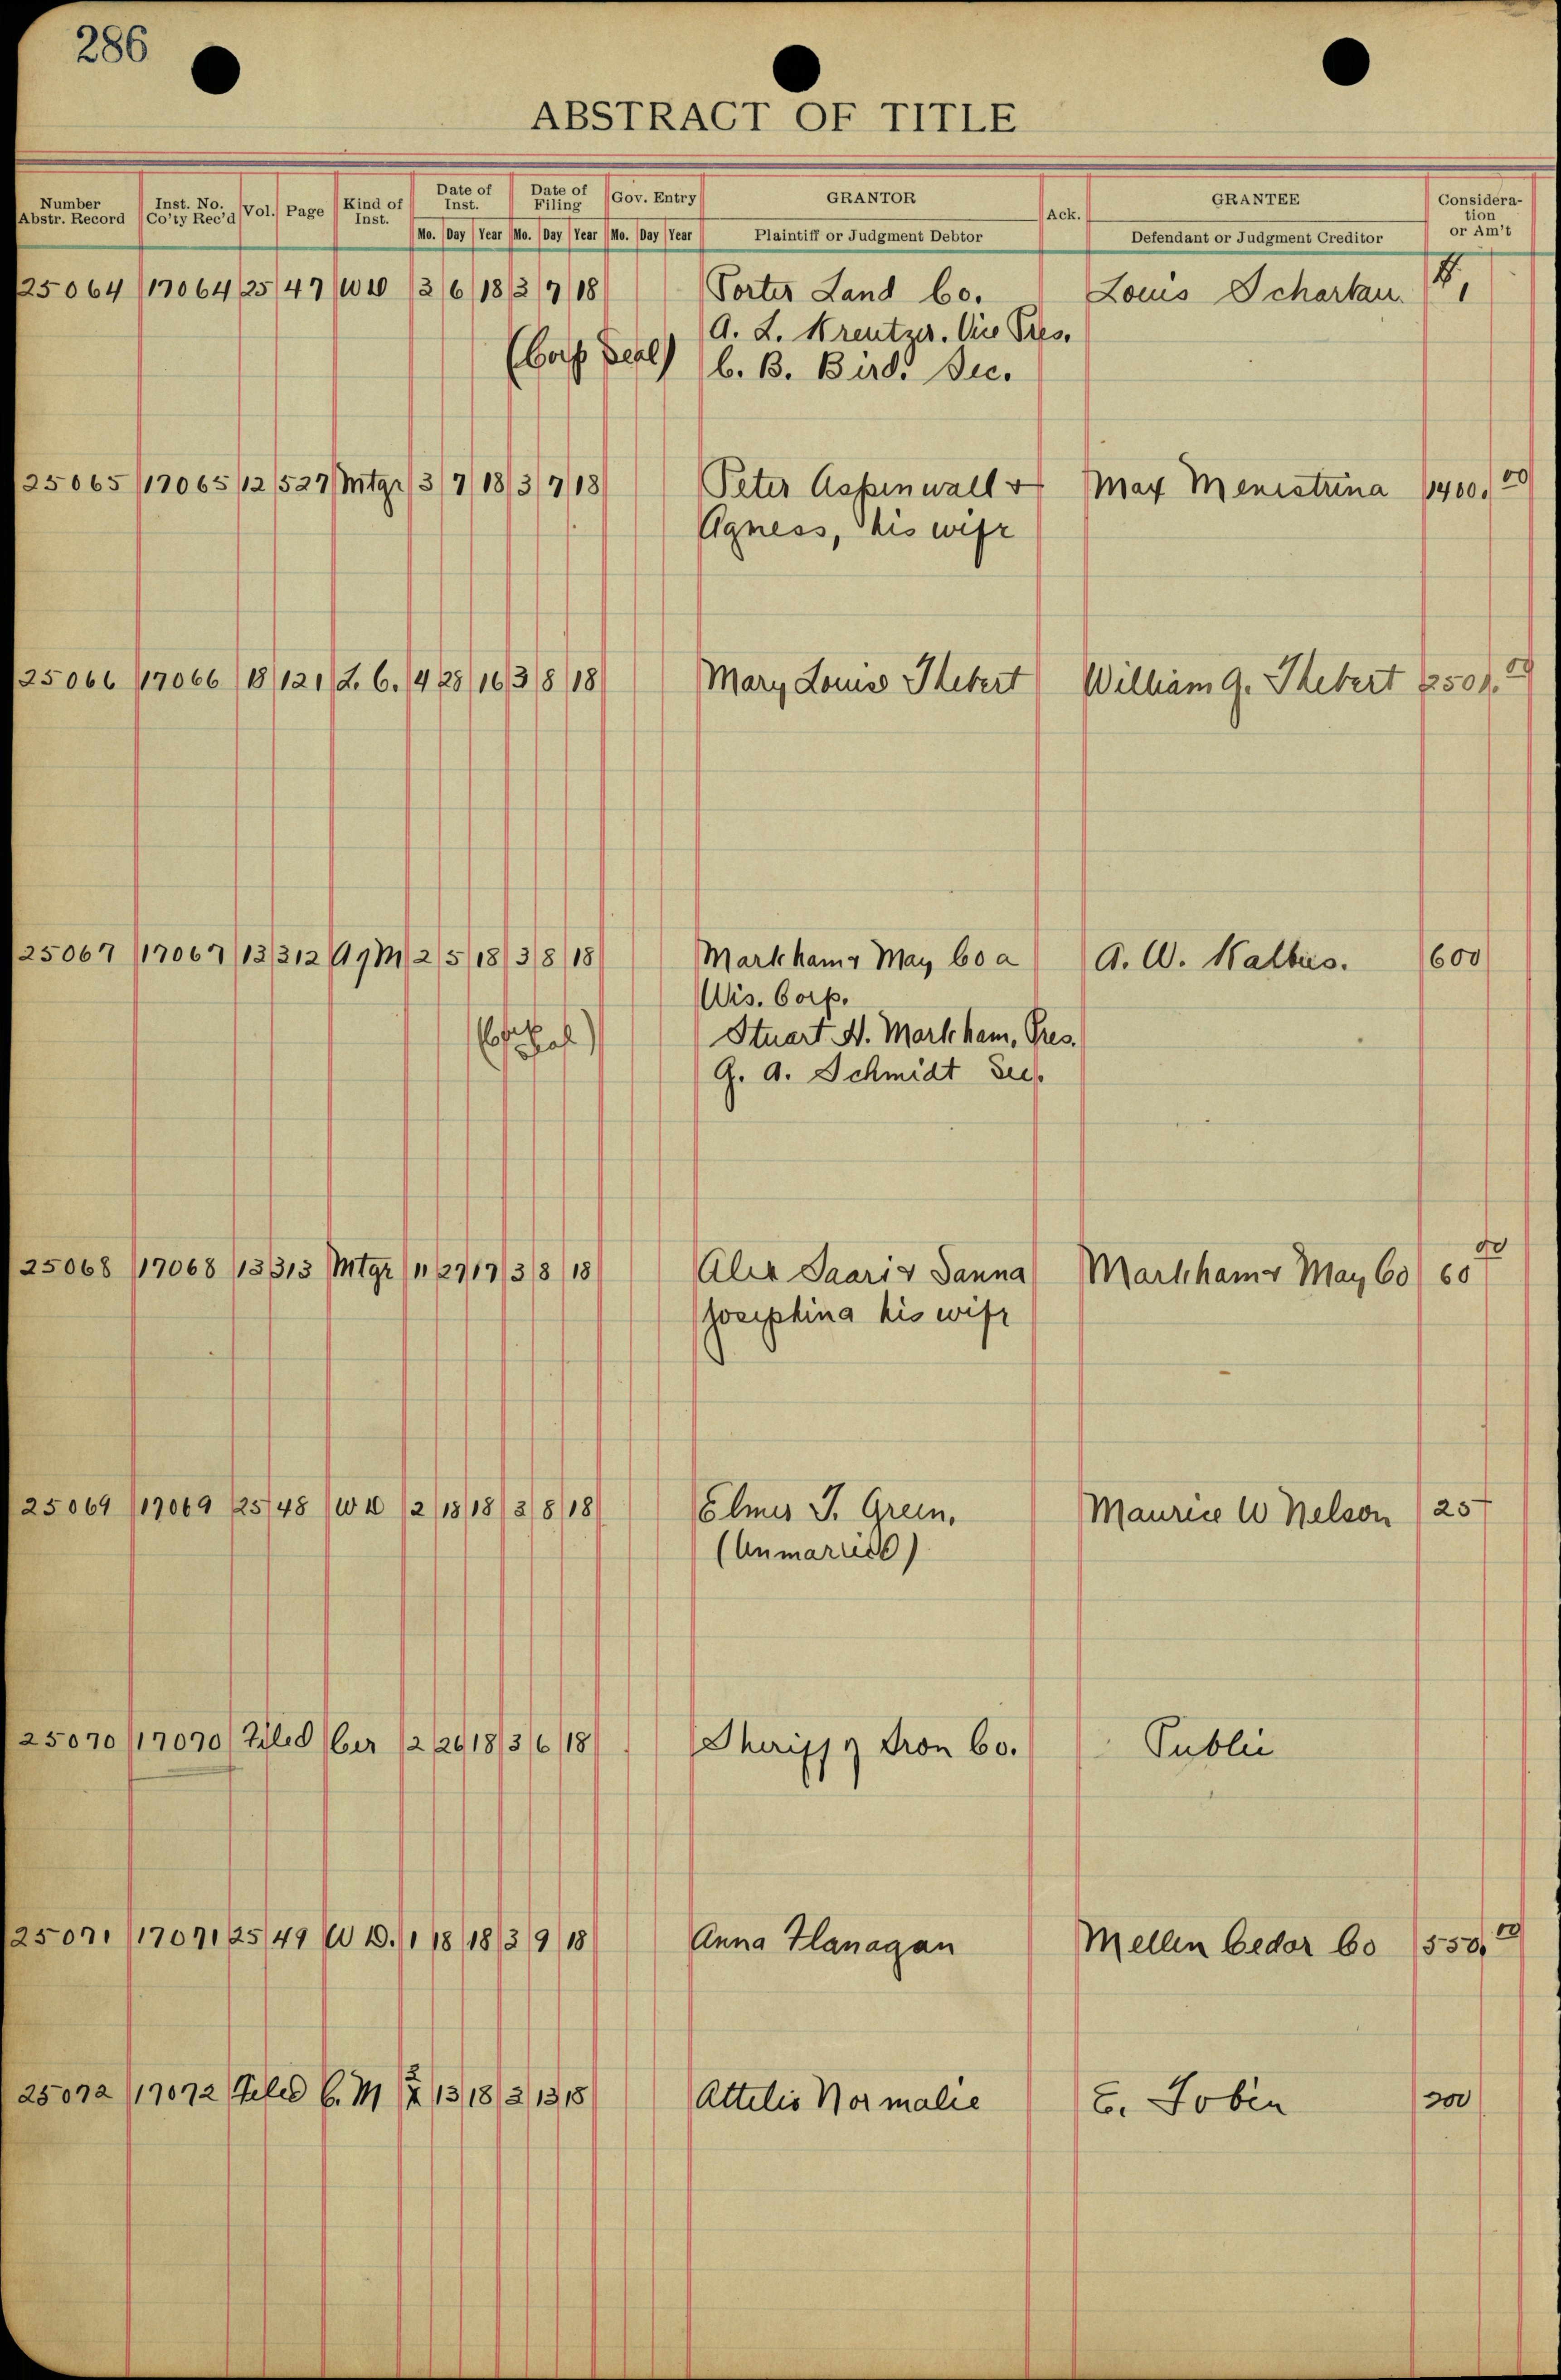 286
ABSTRACT OF TITLE
Number Abstr. Record Inst. No. Co'ty Rec'd Vol. Page Kind of Inst. Date of Inst. Date of Filing Gov. Entry GRANTOR Ack. GRANTEE Consideration or Am't
Mo. Day Year Mo. Day Year Mo. Day Year Plaintiff or Judgment Debtor Defendant or Judgment Creditor
25064 17064 25 47 WD 3 6 18 3 7 18 Porter Land Co. Louis Schartau. $1
A. L. Kreutzer. Vice Pres.
(Corp Seal) C. B. Bird. Sec.
25065 17065 12 527 Mtge 3 7 18 3 7 18 Peter Aspinwall & Max Menestrina 1400.00
Agness, his wife
25066 17066 18 121 L. C. 4 28 16 3 8 18 Mary Louise Thebert William G. Thebert 2501.00
25067 17067 13 312 AgM 2 5 18 3 8 18 Markham & May Co a A. W. Kalbus. 600
Wis. Corp.
Stuart H. Markham, Pres.
G. A. Schmidt Sec.
25068 17068 13 313 Mtge 11 27 17 3 8 18 Alex Saari & Sanna Markham & May Co 60 00
Josephina his wife
25069 17069 25 48 WD 2 18 18 3 8 18 Elmer J. Green, Maurice W Nelson 25
(Unmarried)
25070 17070 Filed Cer 2 26 18 3 6 18 Sheriff of Iron Co. Public
25071 17071 25 49 W D. 1 18 18 3 9 18 Anna Flanagan Mellen Cedar Co 550.00
25072 17072 Filed C. M 2 13 18 3 13 18 Attelio Normalie E. Tobin 200